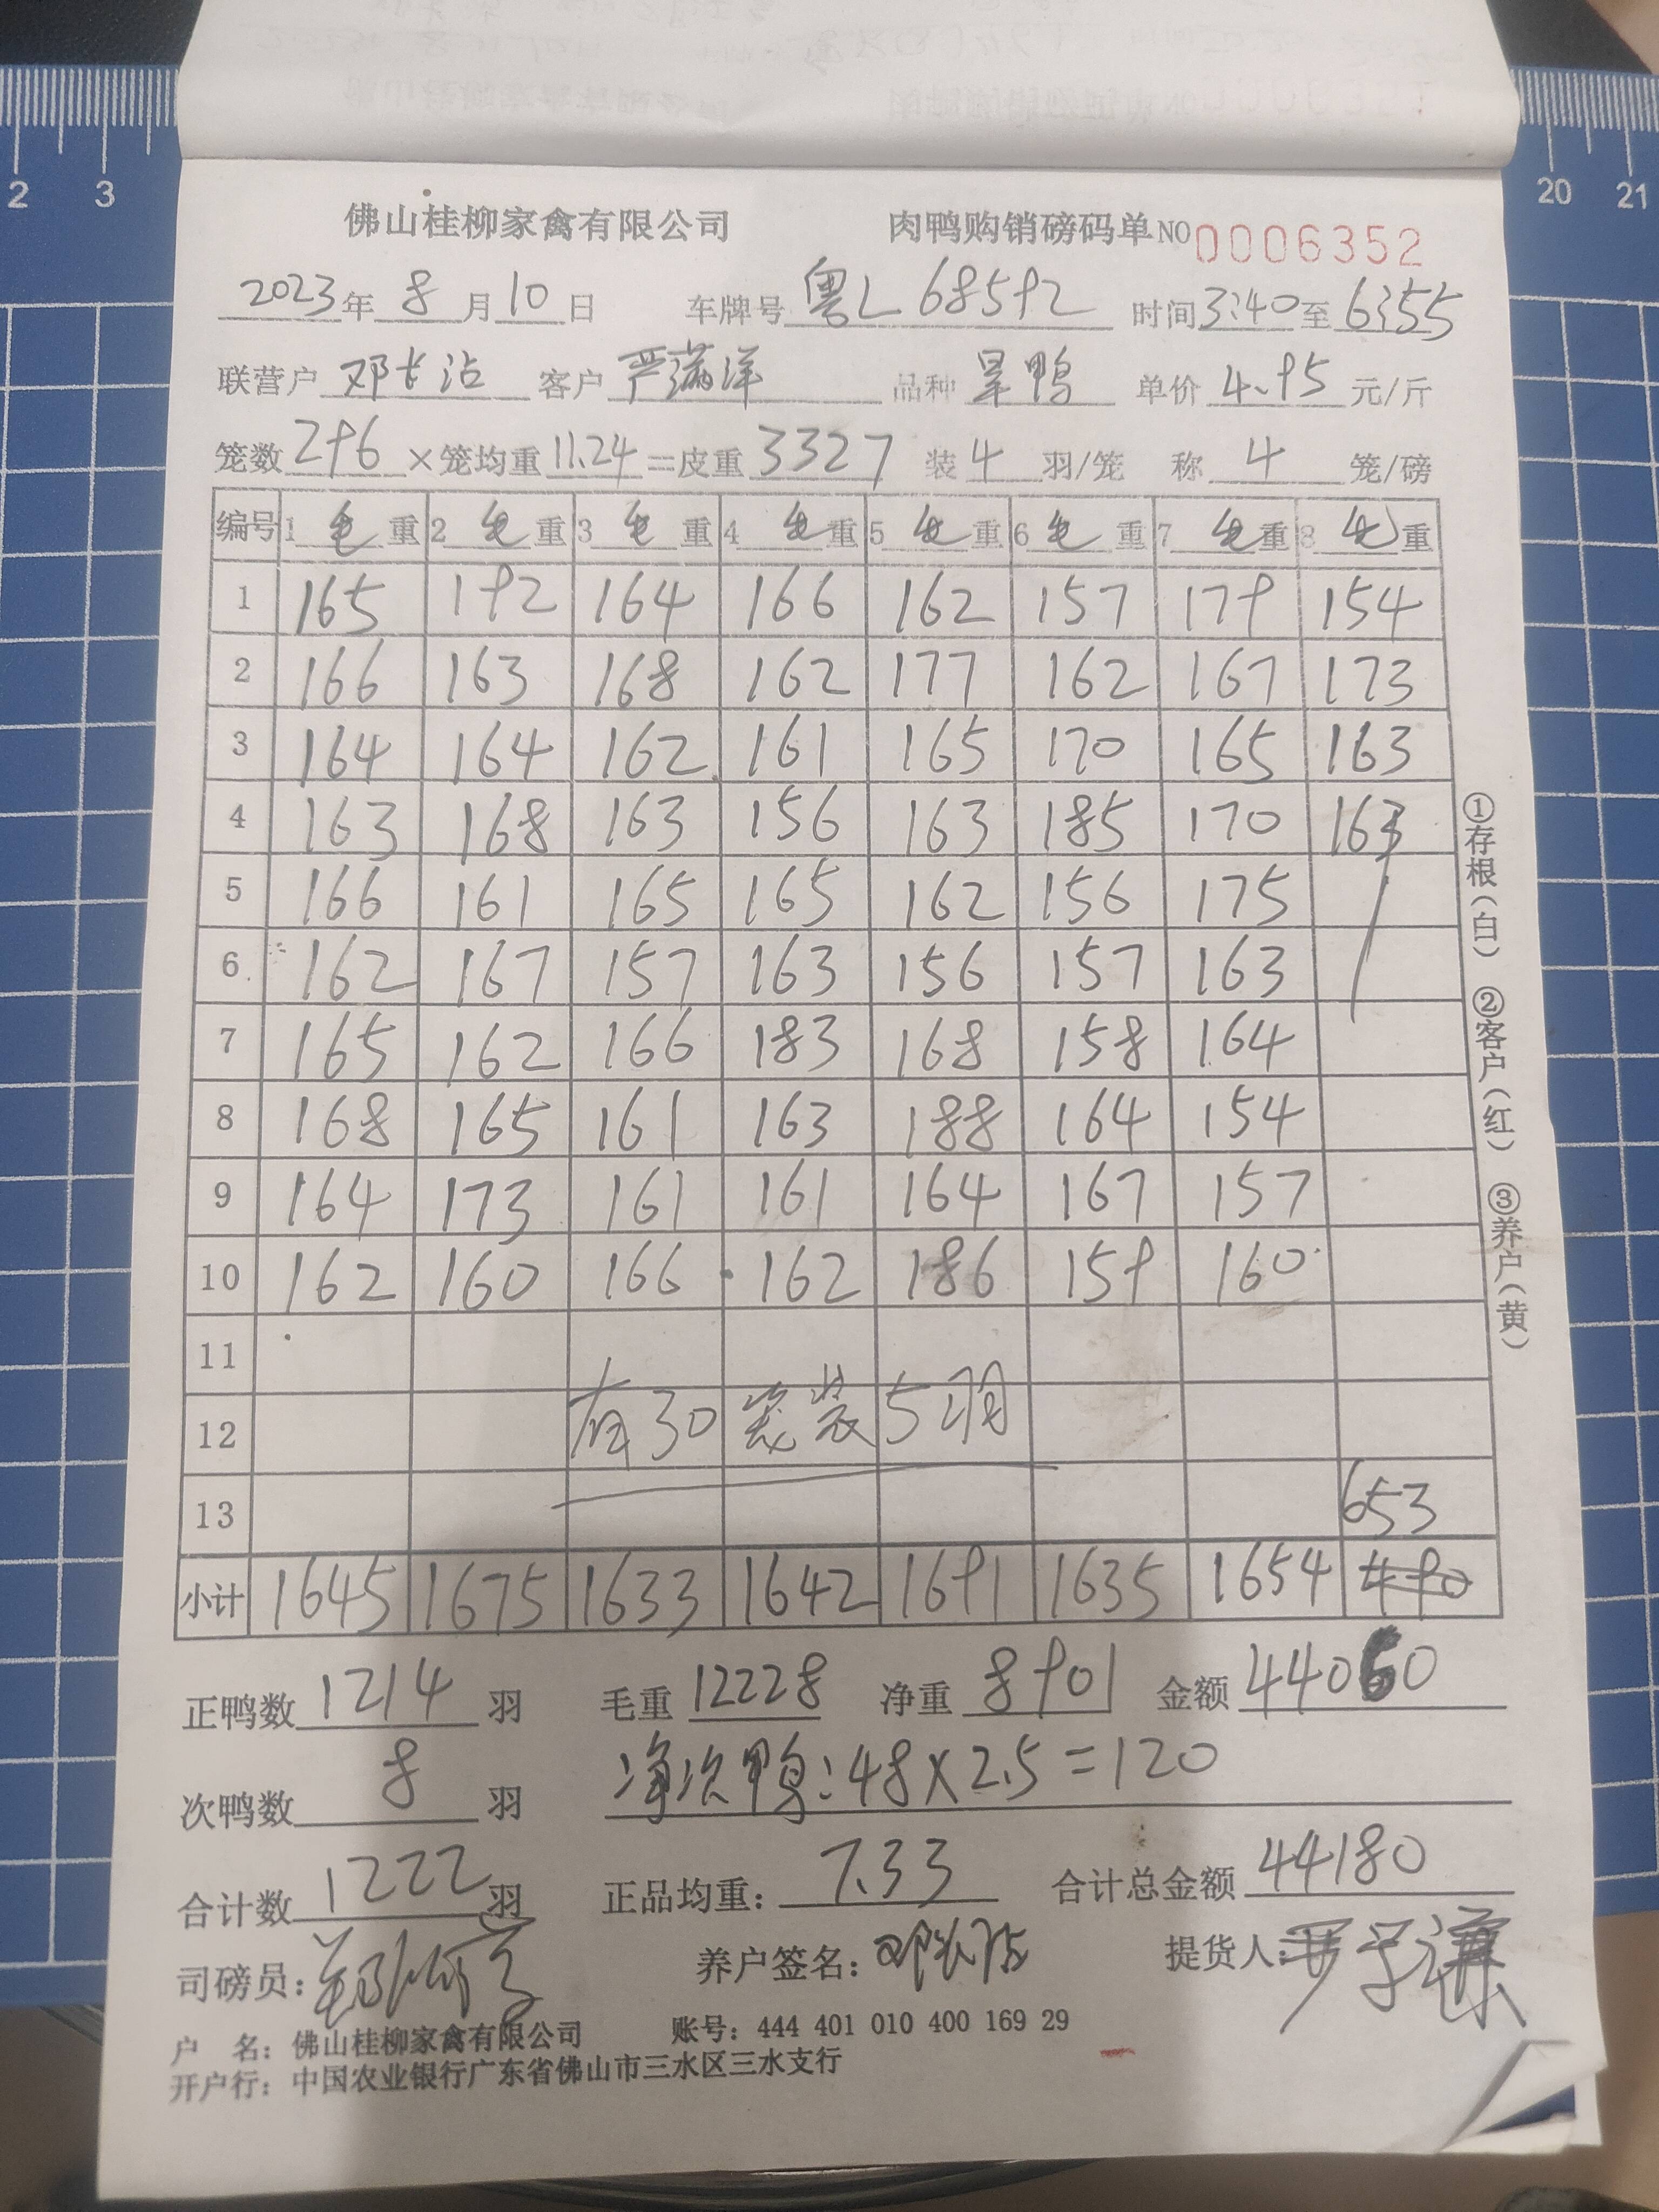 佛山桂柳家禽有限公司 肉鸭购销磅码单 NO 0006352
2023年 8 月 10 日 车牌号 粤L 68592 时间 3:40 至 6:55
联营户 邓长沾 客户 严满洋 品种 旱鸭 单价 4.95 元/斤
笼数 296 ×笼均重 11.24 =皮重 3327 装 4 羽/笼 称 4 笼/磅
编号 1 毛 重 2 毛 重 3 毛 重 4 毛 重 5 毛 重 6 毛 重 7 毛 重 8 毛 重
1 165 192 164 166 162 157 179 154
2 166 163 168 162 177 162 167 173
3 164 164 162 161 165 170 165 163
4 163 168 163 156 163 185 170 163
5 166 161 165 165 162 156 175
6 162 167 157 163 156 157 163
7 165 162 166 183 168 158 164
8 168 165 161 163 188 164 154
9 164 173 161 161 164 167 157
10 162 160 166 162 186 159 160
11
12 有30笼装5羽
13 653
小计 1645 1675 1633 1642 1691 1635 1654 490
正鸭数 1214 羽 毛重 12228 净重 8901 金额 44060
次鸭数 8 羽 净次鸭:48×2.5=120
合计数 1222 羽 正品均重: 7.33 合计总金额 44180
司磅员: 养户签名: 邓长沾 提货人:
户 名: 佛山桂柳家禽有限公司 账号: 444 401 010 400 169 29
开户行: 中国农业银行广东省佛山市三水区三水支行
①存根(白) ②客户(红) ③养户(黄)
2 3 20 21